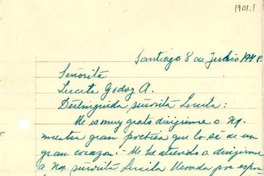 1901.1
Santiago 8 de Junio 1948.
Señorita
Lucila Godoy A.
Distinguida señorita Lucila:
Me es muy grato dirigirme a Ng.
nuestra gran poetisa que lo sé de un
gran corazón. Me he atrevido a dirigirme
a Ng. señorita Lucila llevada por